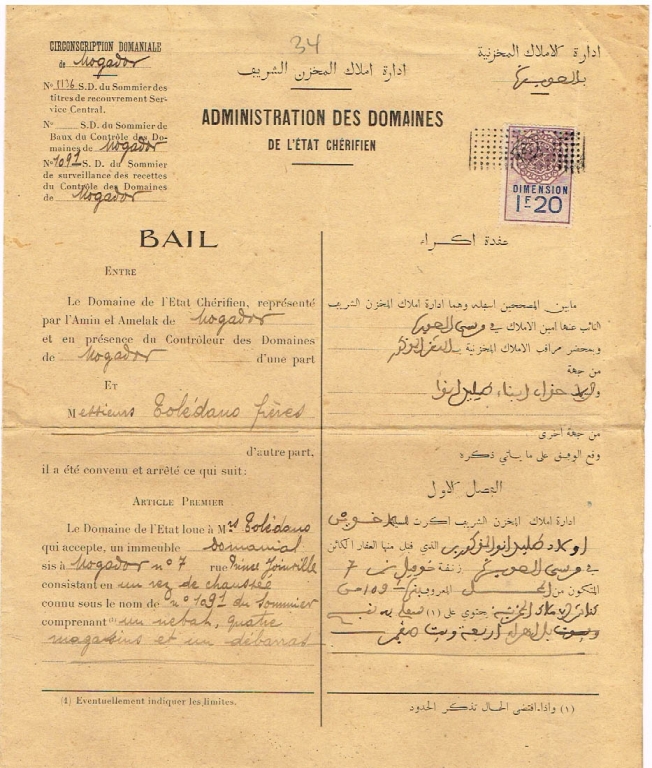 34
CIRCONSCRIPTION DOMANIALE
de Mogador
No 1136 S.D. du Sommier des
titres de recouvrement Ser-
vice Central.
No S.D. du Sommier de
Baux du Contrôle des Do-
maines de Mogador
No 1091 S.D. du Sommier
de surveillance des recettes
du Contrôle des Domaines
de Mogador
ادارة املاك المخزن الشريف
ADMINISTRATION DES DOMAINES
DE L'ÉTAT CHÉRIFIEN
ادارة الاملاك المخزنية
DIMENSION
1F20
BAIL
ENTRE
Le Domaine de l'Etat Chérifien, représenté
par l'Amin el Amelak de Mogador
et en présence du Contrôleur des Domaines
de Mogador d'une part
ET
Messieurs Tolédano frères
d'autre part,
il a été convenu et arrêté ce qui suit:
ARTICLE PREMIER
Le Domaine de l'Etat loue à Mrs Tolédano
qui accepte, un immeuble domanial
sis à Mogador no 7 rue Prince Joinville
consistant en un rez de chaussée
connu sous le nom de no 1091 du Sommier
comprenant un nebah, quatre
magasins et un débarras
(1) Eventuellement indiquer les limites.
عقدة اكراء
مابين المصححين اسفله وهما ادارة املاك المخزن الشريف
النائب عنها امين الاملاك في
وبمحضر مراقب الاملاك المخزنية
من جهة
من جهة اخرى
وقع الوفق على ما ياتي ذكره
الفصل الاول
ادارة املاك المخزن الشريف اكرت
الذي قبل منها العقار الكائن
في زنقة 7
المتكون من المعروف
يحتوي على (١)
(١) واذا اقتضى الحال تذكر الحدود